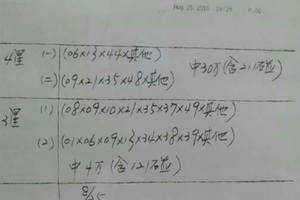 Aug 25 2015
P.01
4星 (一) (06×13×44×其他)
中30万(含211万应)
(二) (09×21×35×48×其他)
3星 (1) (08×09×10×21×35×37×49×其他)
(2) (01×06×09×13×34×38×39×其他)
中4万(含121万应)
8/25